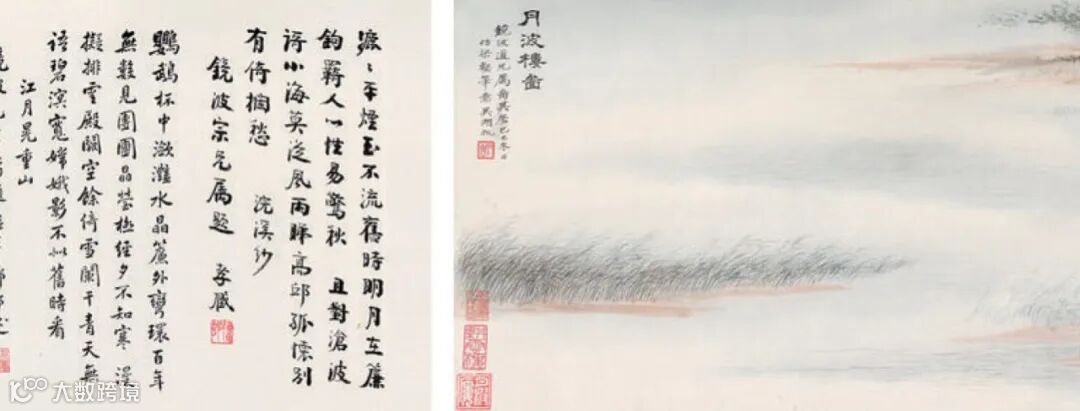 平煙玉不流舊時明月在簾
鉤羈人心性易驚秋 且對滄波
小海莫從風雨睇高邱孤懷別
有倚愁 浣溪紗
鏡波宗兄属題 孝臧
鸚鵡杯中瀲灩水晶簾外彎環百年
無數見團圞晶瑩極經夕不知寒 漫
擬排雲殿闕空餘倚雪闌干青天無
語碧溟寬嫦娥影不似舊時看
江月晃重山
月波樓圖
鏡波道兄属己巳冬日
筆意吳湖帆
大数跨境